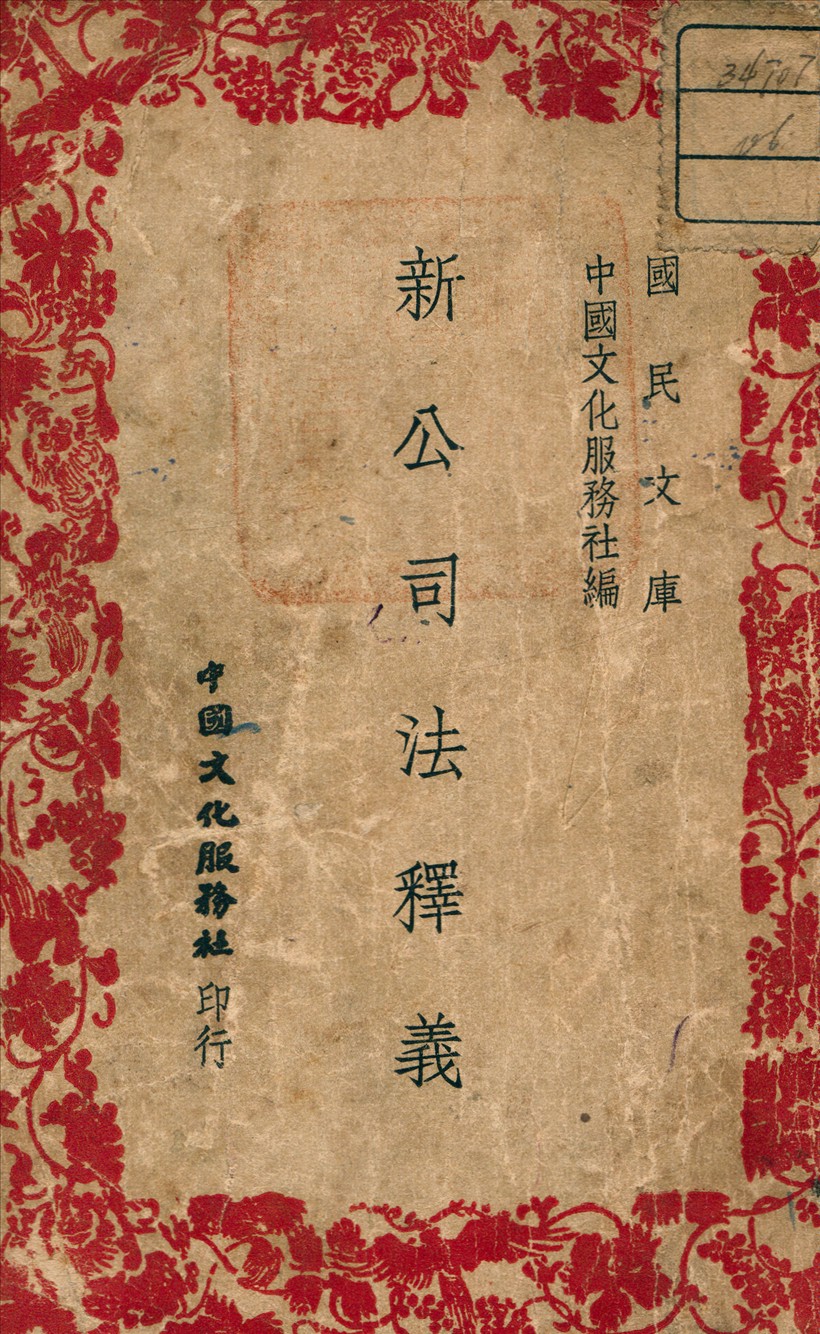 國民文庫
中國文化服務社編
新公司法釋義
中國文化服務社印行